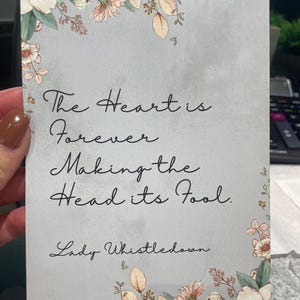 The Heart is
Forever
Making the
Head its Fool.
Lady Whistledown